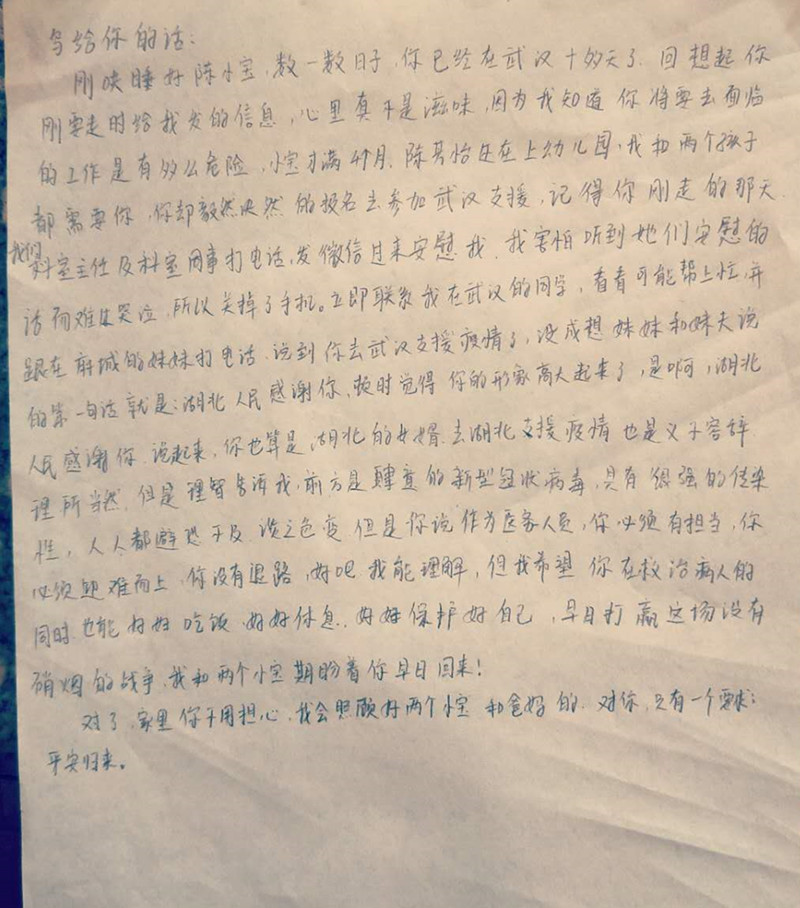 写给你的话：
刚哄睡好陈小宝，数一数日子，你已经在武汉十多天了．回想起你
刚要走时给我发的信息，心里真不是滋味，因为我知道你将要去面临
的工作是有多么危险，小宝才满4个月、陈昇怡还在上幼儿园，我和两个孩子
都需要你，你却毅然决然的报名去参加武汉支援，记得你刚走的那天．
我们科室主任及科室同事打电话，发微信过来安慰我．我害怕听到她们安慰的
话而难过哭泣，所以关掉了手机。立即联系我在武汉的同学，看看可能帮上忙，并
跟在麻城的妹妹打电话．说到你去武汉支援疫情了，没成想妹妹和妹夫说
的第一句话就是：湖北人民感谢你，顿时觉得你的形象高大起来了，是啊，湖北
人民感谢你．说起来，你也算是湖北的女婿．去湖北支援疫情也是义不容辞
理所当然．但是理智告诉我，前方是肆虐的新型冠状病毒，具有很强的传染
性，人人都避恐不及谈之色变 但是你说作为医务人员，你必须有担当，你
必须迎难而上．你没有退路，好吧．我能理解，但我希望你在救治病人的
同时，也能好好吃饭 好好休息．好好保护好自己，早日打赢这场没有
硝烟的战争．我和两个小宝期盼着你早日回来！
对了，家里你不用担心．我会照顾好两个小宝和爸妈的．对你，只有一个要求：
平安归来。